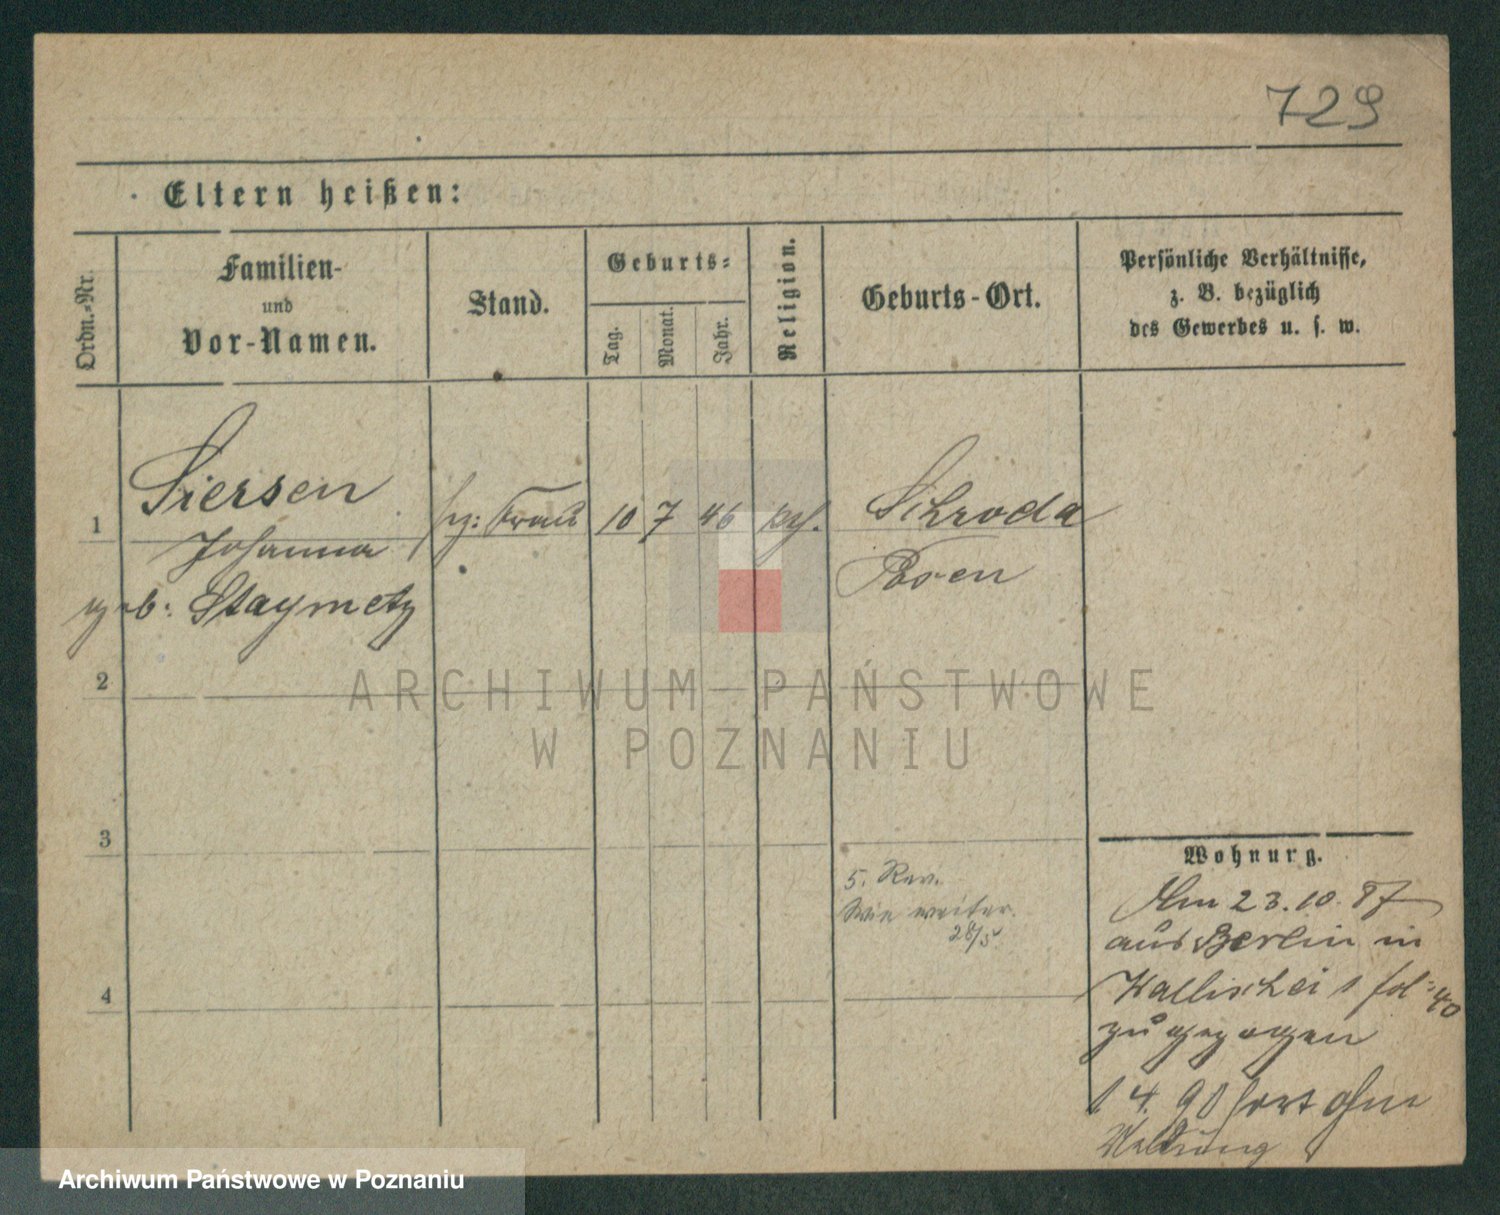 729
Eltern heißen:
Ordn.-Nr.
Familien-
und
Vor-Namen.
Stand.
Geburts-
Tag.
Monat.
Jahr.
Religion.
Geburts-Ort.
Persönliche Verhältnisse,
z. B. bezüglich
des Gewerbes u. s. w.
1
Siersen
Johanna
geb: Staymetz
Frau
10
7
46
Schroda
Posen
2
3
4
5. Rev.
Wie weiter.
28/5.
Wohnung.
Am 23.10.87
aus Berlin in
Wallischei 1 fol: 40
zugezogen
1 4. 90 fort ohne
Meldung
ARCHIWUM PAŃSTWOWE
W POZNANIU
Archiwum Państwowe w Poznaniu